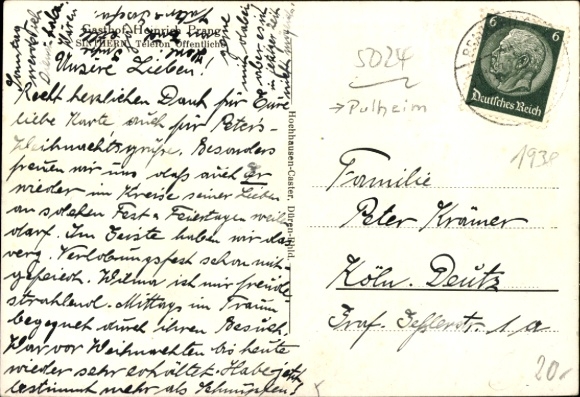 Gasthof Heinrich Prang
SINTHERN, Telefon Öffentlich
Unsere Lieben!
Recht herzlichen Dank für Eure
liebe Karte auch für Peter's
Weihnachtsgrüße. Besonders
freuen wir uns, daß auch er
wieder im Kreise seiner Lieben
an solchen Fest u. Feiertagen weilen
darf. Im Geiste haben wir das
verg. Verlobungsfest schon mit-
gefeiert. Wilma ist mir freude-
strahlend Mittags im Traum
begegnet durch ihren Besuch.
War vor Weihnachten bis heute
wieder sehr erkältet. Habe jetzt
bestimmt mehr als Schnupfen!
Hoehhausen-Caster, Düren-Rhld.
5024
→ Pulheim
6 6
Deutsches Reich
193
Familie
Peter Krämer
Köln. Deutz
Graf. Geßlerstr. 1a
20.-